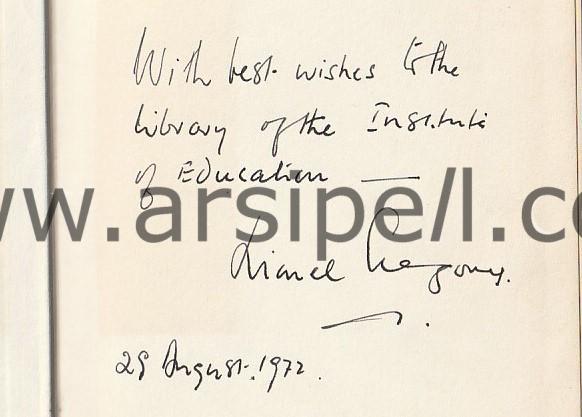 With best wishes to the
Library of the Institute
of Education —
www.arsipell.co
Lionel Gregory.
29 August. 1972.